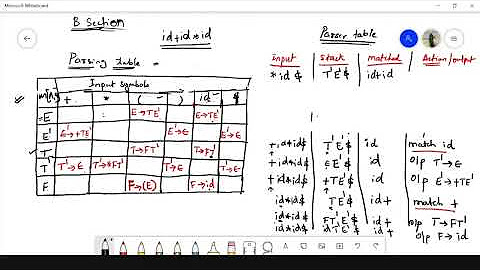 Microsoft Whiteboard
B Section
id+id*id
Parsing table =
Input symbols
M[A,a] + * ( ) id $
E E→TE' E→TE'
E' E'→+TE' E'→ε E'→ε
T T→FT' T→FT'
T' T'→ε T'→*FT' T'→ε T'→ε
F F→(E) F→id
Parser table
input stack matched Action/output
*id $ T'E'$ id+id
+id*id$ T'E'$ id match id
+id*id$ E'$ id o/p T'→ε
+id*id$ +TE'$ id o/p E'→+TE'
id*id$ TE'$ id+ match +
id*id$ FT'E'$ id+ o/p T→FT'
id*id$ id T'E'$ id+ o/p F→id